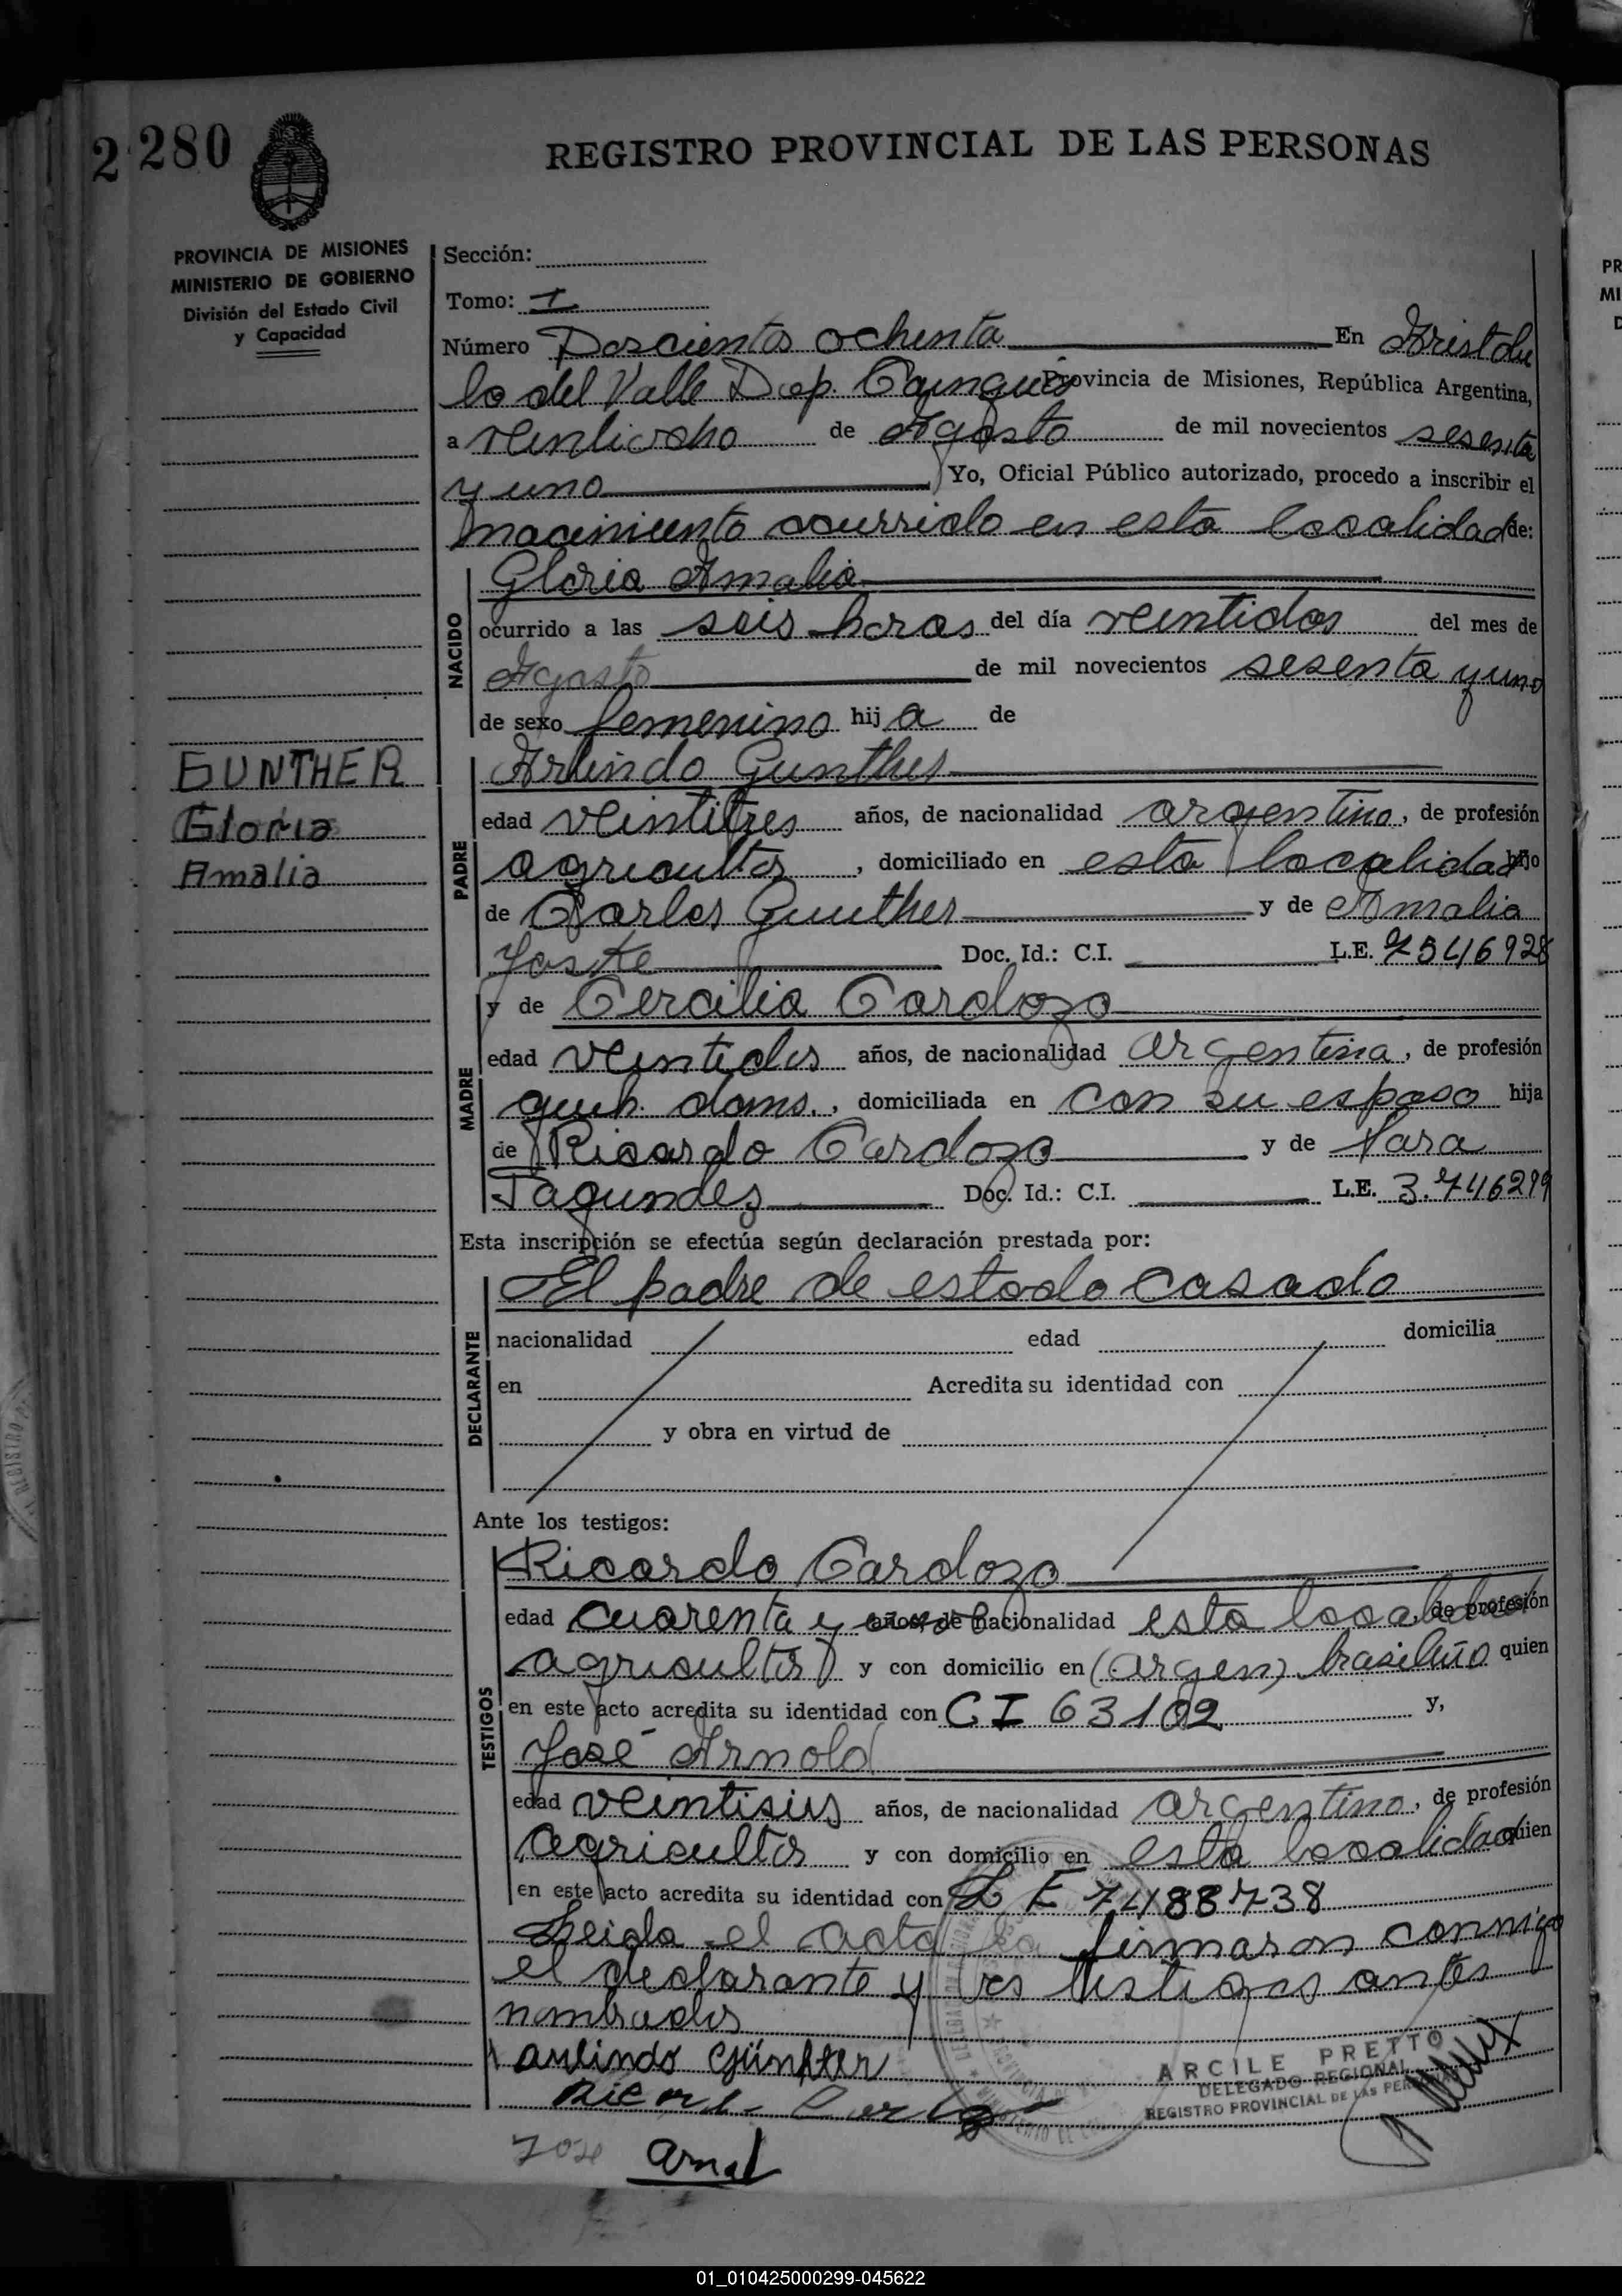 2 280
REGISTRO PROVINCIAL DE LAS PERSONAS
PROVINCIA DE MISIONES
MINISTERIO DE GOBIERNO
División del Estado Civil
y Capacidad
Sección:
Tomo: I
Número Doscientos ochenta En Aristolu
lo del Valle Dep. Cainguas Provincia de Misiones, República Argentina,
a veintiocho de Agosto de mil novecientos sesenta
y uno Yo, Oficial Público autorizado, procedo a inscribir el
nacimiento ocurrido en esta localidad de:
NACIDO
Gloria Amalia
ocurrido a las seis horas del día veintidos del mes de
Agosto de mil novecientos sesenta y uno
de sexo femenino hij a de
GUNTHER
Gloria
Amalia
PADRE
Arlindo Gunther
edad veintitres años, de nacionalidad argentino, de profesión
agricultor, domiciliado en esta localidad hijo
de Carlos Gunther y de Amalia
Jaske Doc. Id.: C.I. L.E. 7546928
MADRE
y de Cercilia Cardozo
edad veintidos años, de nacionalidad argentina, de profesión
queh. doms., domiciliada en con su esposo hija
de Ricardo Cardozo y de Sara
Fagundez Doc. Id.: C.I. L.E. 3.746299
Esta inscripción se efectúa según declaración prestada por:
DECLARANTE
El padre de estado casado
nacionalidad edad domicilia
en Acredita su identidad con
y obra en virtud de
Ante los testigos:
TESTIGOS
Ricardo Cardozo
edad cuarenta y años, de nacionalidad esta localidad, de profesión
agricultor y con domicilio en (argen) brasileño quien
en este acto acredita su identidad con CI 63102 y,
José Arnold
edad veintiseis años, de nacionalidad argentino, de profesión
agricultor y con domicilio en esta localidad quien
en este acto acredita su identidad con L E 7488738
Leida el acta la firmaron conmigo
el declarante y los testigos antes
nombrados
arlindo Günther
ARCILE PRETTO
DELEGADO REGIONAL
REGISTRO PROVINCIAL DE LAS PERSONAS
Jose
01_010425000299-045622